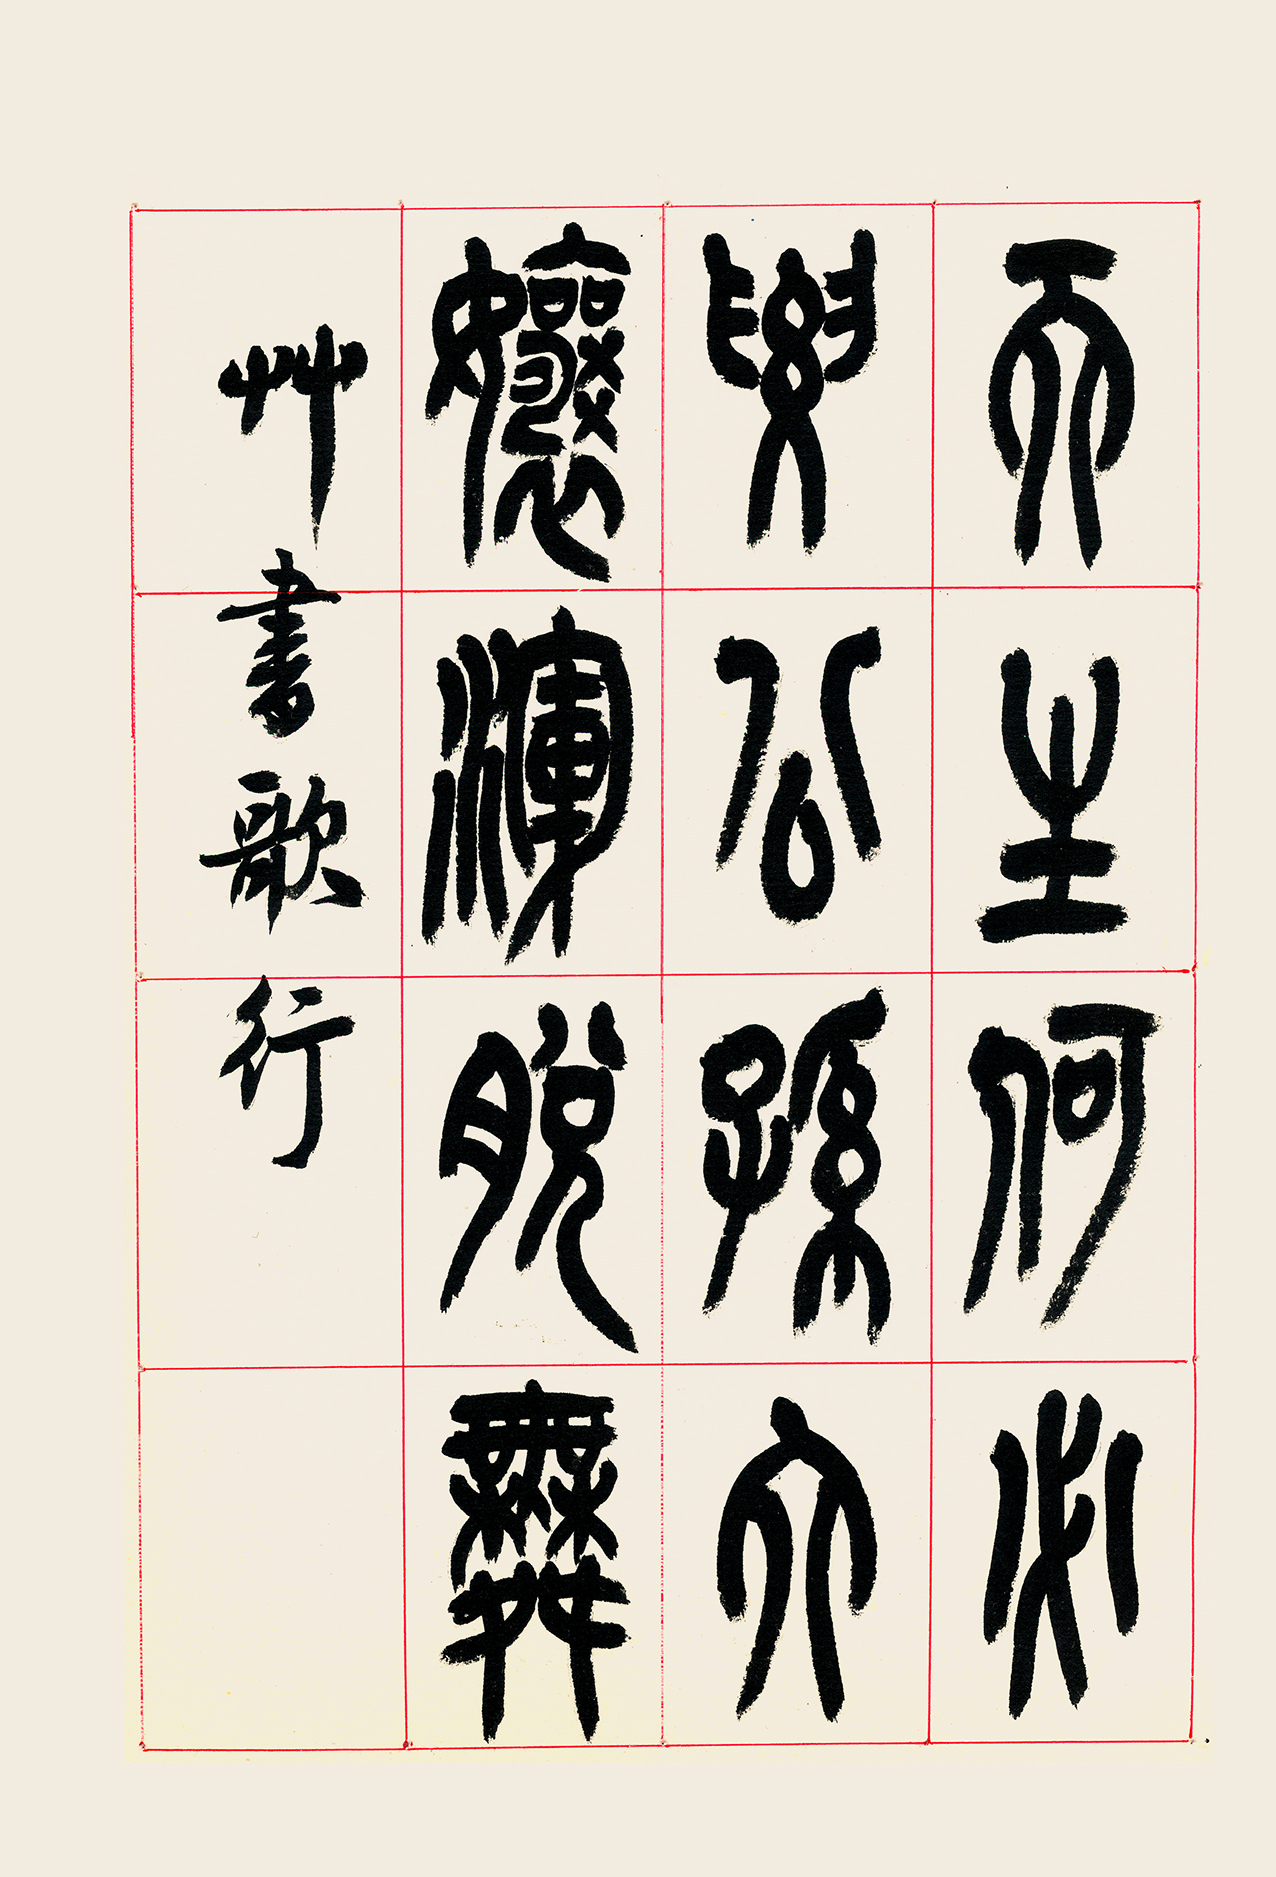 天生何必
要公孫大
孃渾脫舞
艸書歌行